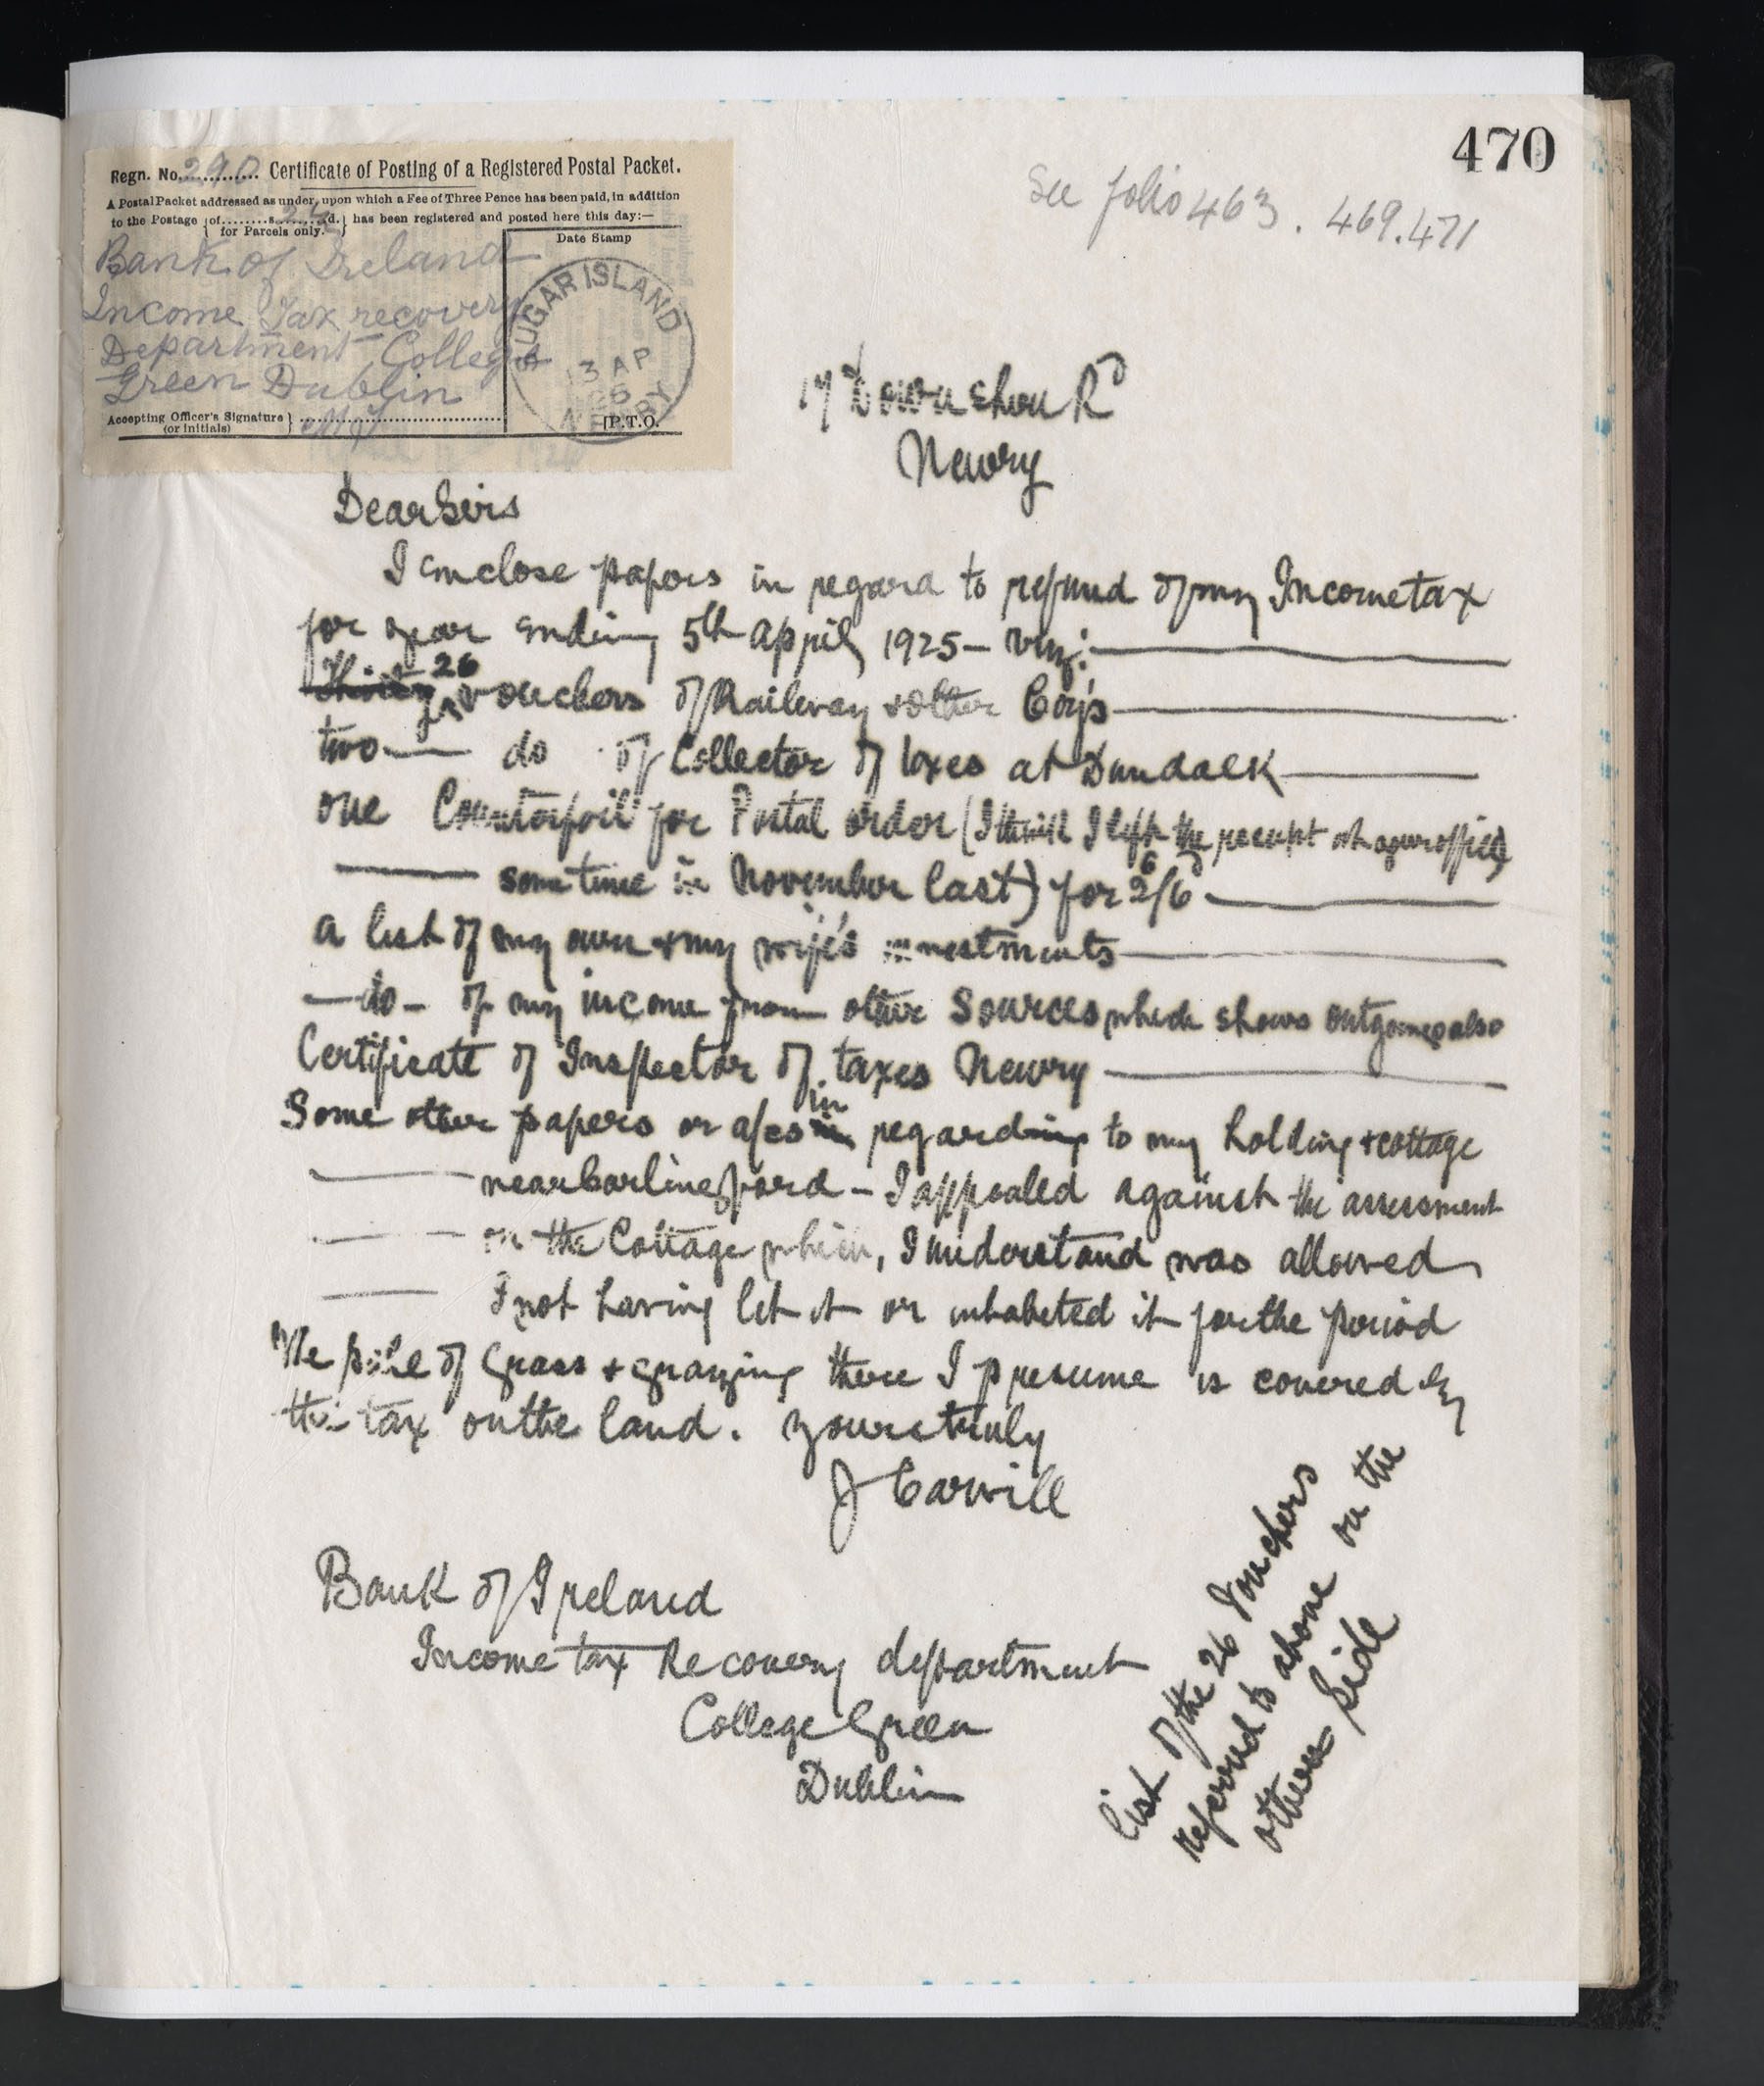 470
See folio 463. 469.471
Regn. No. 290 Certificate of Posting of a Registered Postal Packet.
A Postal Packet addressed as under, upon which a Fee of Three Pence has been paid, in addition
to the Postage { of........s........d. } has been registered and posted here this day:—
for Parcels only.
Date Stamp
Bank of Ireland
Income Tax recovery
Department College
Green Dublin
SUGAR ISLAND
13 AP
26
NEWRY
Accepting Officer's Signature } 
(or initials)
[P.T.O.
17 Downshire Rd
Newry
Dear Sirs
I enclose papers in regard to refund of my Income tax
for year ending 5th April 1925 — viz:
Thirty 26 vouchers of Railway & other Coy's
two — do of Collector of taxes at Dundalk
one Counterfoil for Postal order (I think I left the receipt at your office
some time in November last) for 2/6
a list of my own & my wife's investments
— do — of my income from other Sources which shows outgoings also
Certificate of Inspector of taxes Newry
Some other papers or a/cs in regarding to my holding & cottage
near Carlingford — I appealed against the assessment
on the Cottage which, I understand was allowed
I not having let it or inhabited it for the period
The sale of Grass & grazing there I presume is covered by
the tax on the land. yours truly
J Carvill
Bank of Ireland
Income tax Recovery department
College Green
Dublin
List of the 26 Vouchers
referred to above on the
other side